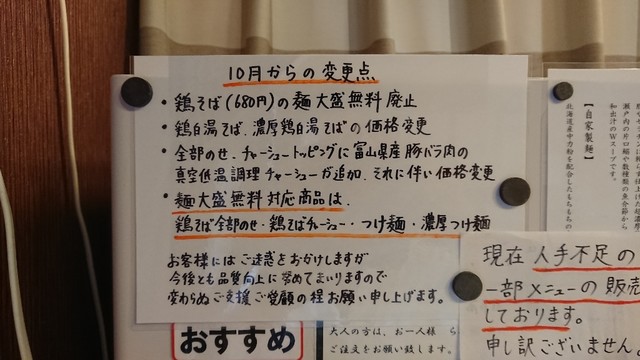 10月からの変更点
・鶏そば(680円)の麺大盛無料廃止
・鶏白湯そば、濃厚鶏白湯そばの価格変更
・全部のせ、チャーシュートッピングに富山県産豚バラ肉の
真空低温調理チャーシューが追加、それに伴い価格変更
・麺大盛無料対応商品は、
鶏そば全部のせ・鶏そばチャーシュー・つけ麺・濃厚つけ麺
お客様にはご迷惑をおかけしますが
今後とも品質向上に努めてまいりますので
変わらぬご支援ご愛顧の程お願い申し上げます。
おすすめ
大人の方は、お一人様
ご注文をお願い致します。
【自家製麺】
北海道産中力粉を配合したもちもちの
瀬戸内の片口鰯や数種類の魚介節から
和出汁のWスープです。
現在 人手不足の
一部メニューの販売
しております。
申し訳ございません